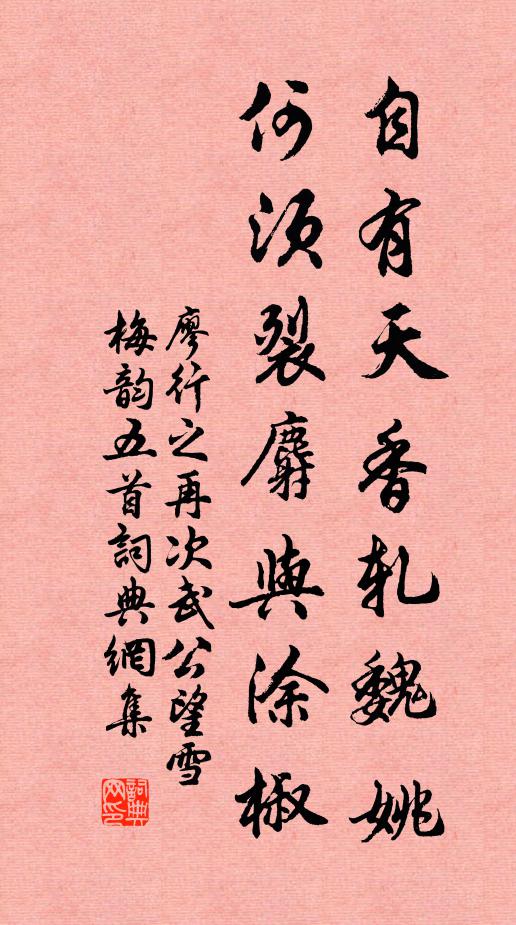 自有天香軋魏姚
何須裂麝與涂椒
廖行之再次武公望雪
梅韵五首詞典網集
詞典網印